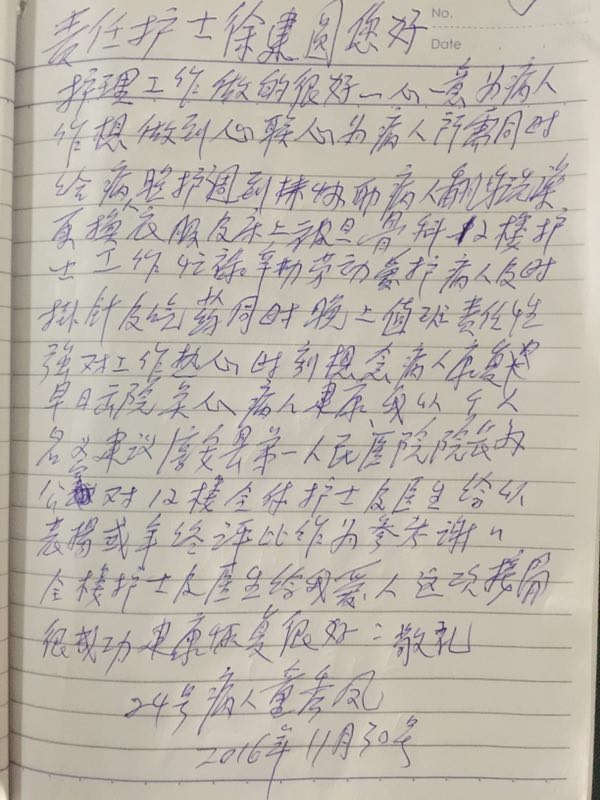 No.
Date
责任护士徐建圆您好
护理工作做的很好一心一意为病人
作想做到心联心为病人所需同时
给病照护週到 协助病人翻身洗澡
更换衣服及床上被单骨科12楼护
士工作 辛勤劳动爱护病人及时
掛针及吃药同时晚上值班责任性
强对工作热心时刻想念病人康复
早日出院关心病人健康我以个人
名义建议 县第一人民医院院长办
公 对12楼全体护士及医生给以
表揚或年终评比作为参考谢〃
全楼护士及医生给我爱人这次接骨
很成功健康恢复很好：敬礼
24号病人童秀凤
2016年11月30号